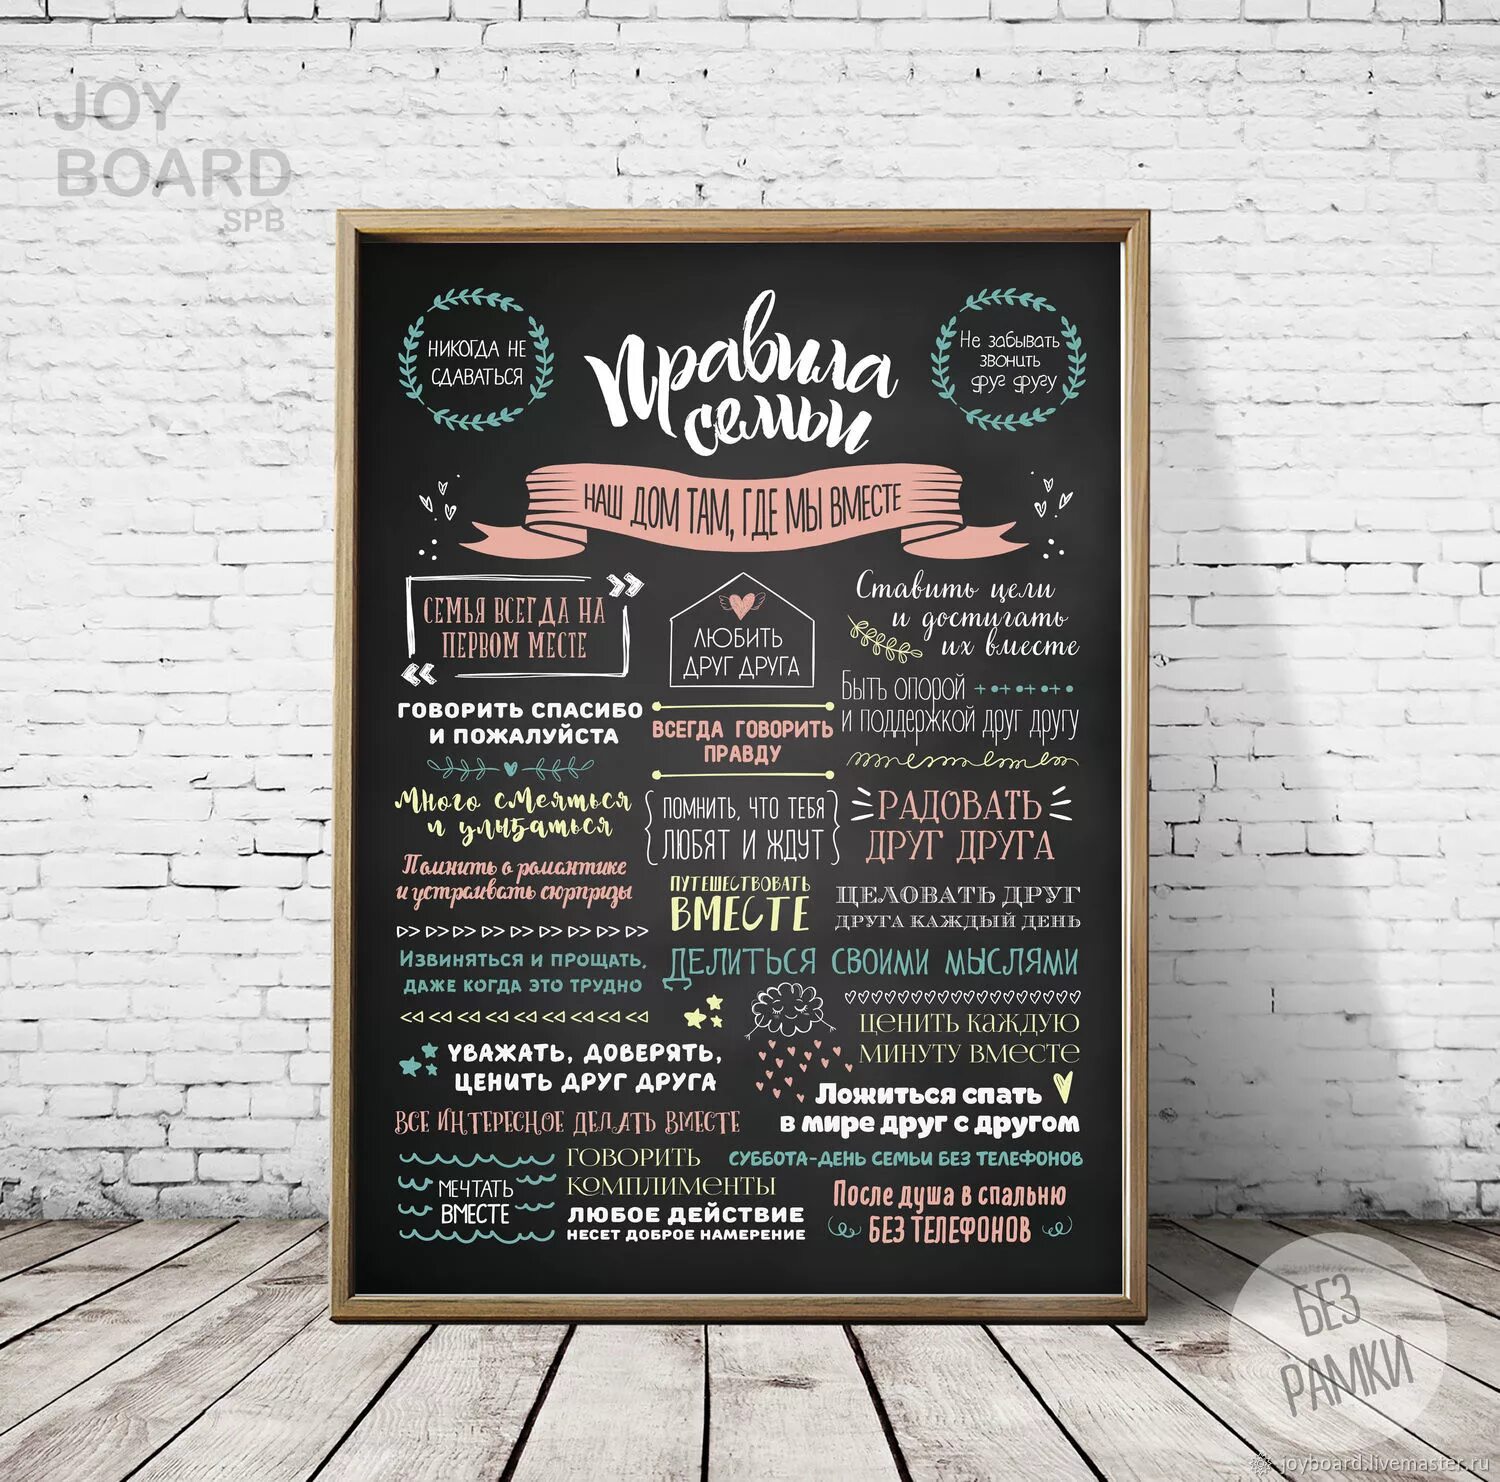 JOY
BOARD
SPB
НИКОГДА НЕ
СДАВАТЬСЯ
Правила
семьи
Не забывать
звонить
друг другу
НАШ ДОМ ТАМ, ГДЕ МЫ ВМЕСТЕ
СЕМЬЯ ВСЕГДА НА
ПЕРВОМ МЕСТЕ
ЛЮБИТЬ
ДРУГ ДРУГА
Ставить цели
и достигать
их вместе
ГОВОРИТЬ СПАСИБО
И ПОЖАЛУЙСТА
ВСЕГДА ГОВОРИТЬ
ПРАВДУ
Быть опорой
и поддержкой друг другу
Много смеяться
и улыбаться
ПОМНИТЬ, ЧТО ТЕБЯ
ЛЮБЯТ И ЖДУТ
РАДОВАТЬ
ДРУГ ДРУГА
Помнить о романтике
и устраивать сюрпризы
ПУТЕШЕСТВОВАТЬ
ВМЕСТЕ
ЦЕЛОВАТЬ ДРУГ
ДРУГА КАЖДЫЙ ДЕНЬ
Извиняться и прощать,
даже когда это трудно
ДЕЛИТЬСЯ СВОИМИ МЫСЛЯМИ
ЦЕНИТЬ КАЖДУЮ
МИНУТУ ВМЕСТЕ
УВАЖАТЬ, ДОВЕРЯТЬ,
ЦЕНИТЬ ДРУГ ДРУГА
Ложиться спать
в мире друг с другом
ВСЕ ИНТЕРЕСНОЕ ДЕЛАТЬ ВМЕСТЕ
МЕЧТАТЬ
ВМЕСТЕ
ГОВОРИТЬ
КОМПЛИМЕНТЫ
СУББОТА-ДЕНЬ СЕМЬИ БЕЗ ТЕЛЕФОНОВ
ЛЮБОЕ ДЕЙСТВИЕ
НЕСЕТ ДОБРОЕ НАМЕРЕНИЕ
После душа в спальню
БЕЗ ТЕЛЕФОНОВ
БЕЗ
РАМКИ
joyboard.livemaster.ru